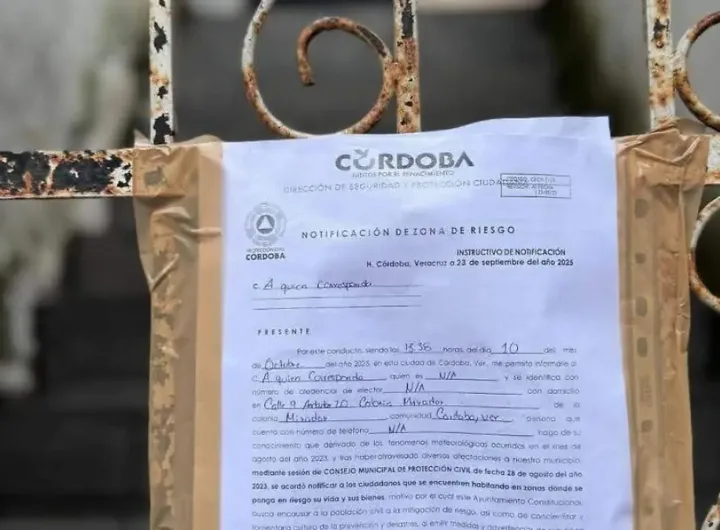 CÓRDOBA
JUNTOS POR EL RENACIMIENTO
DIRECCIÓN DE SEGURIDAD Y PROTECCIÓN CIUDA
PROTECCIÓN CIVIL
CÓRDOBA
NOTIFICACIÓN DE ZONA DE RIESGO
INSTRUCTIVO DE NOTIFICACIÓN
H. Córdoba, Veracruz a 23 de septiembre del año 2025
C. A quien Corresponda
PRESENTE
Por este conducto, siendo las 13:36 horas del día 10 del mes
de Octubre del año 2025, en esta ciudad de Córdoba, Ver. me permito informarle al
C. A quien Corresponda quien es N/A y se identifica con
número de credencial de elector N/A con domicilio
en Calle 9 20 Colonia Mirador de la
colonia Mirador comunidad Cordoba, Ver. persona que
cuenta con número de teléfono N/A hago de su
conocimiento que derivado de los fenómenos meteorológicos ocurridos en el mes de
agosto del año 2023, y tras haber atravesado diversas afectaciones a nuestro municipio,
mediante sesión de CONSEJO MUNICIPAL DE PROTECCIÓN CIVIL de fecha 28 de agosto del año
2023, se acordó notificar a los ciudadanos que se encuentren habitando en zonas donde se
ponga en riesgo su vida y sus bienes, motivo por el cual este Ayuntamiento Constitucional
busca encausar a la población civil a la mitigación de riesgo, así como de concientizar y
fomentar la cultura de la prevención y desastres, a emitir medidas y